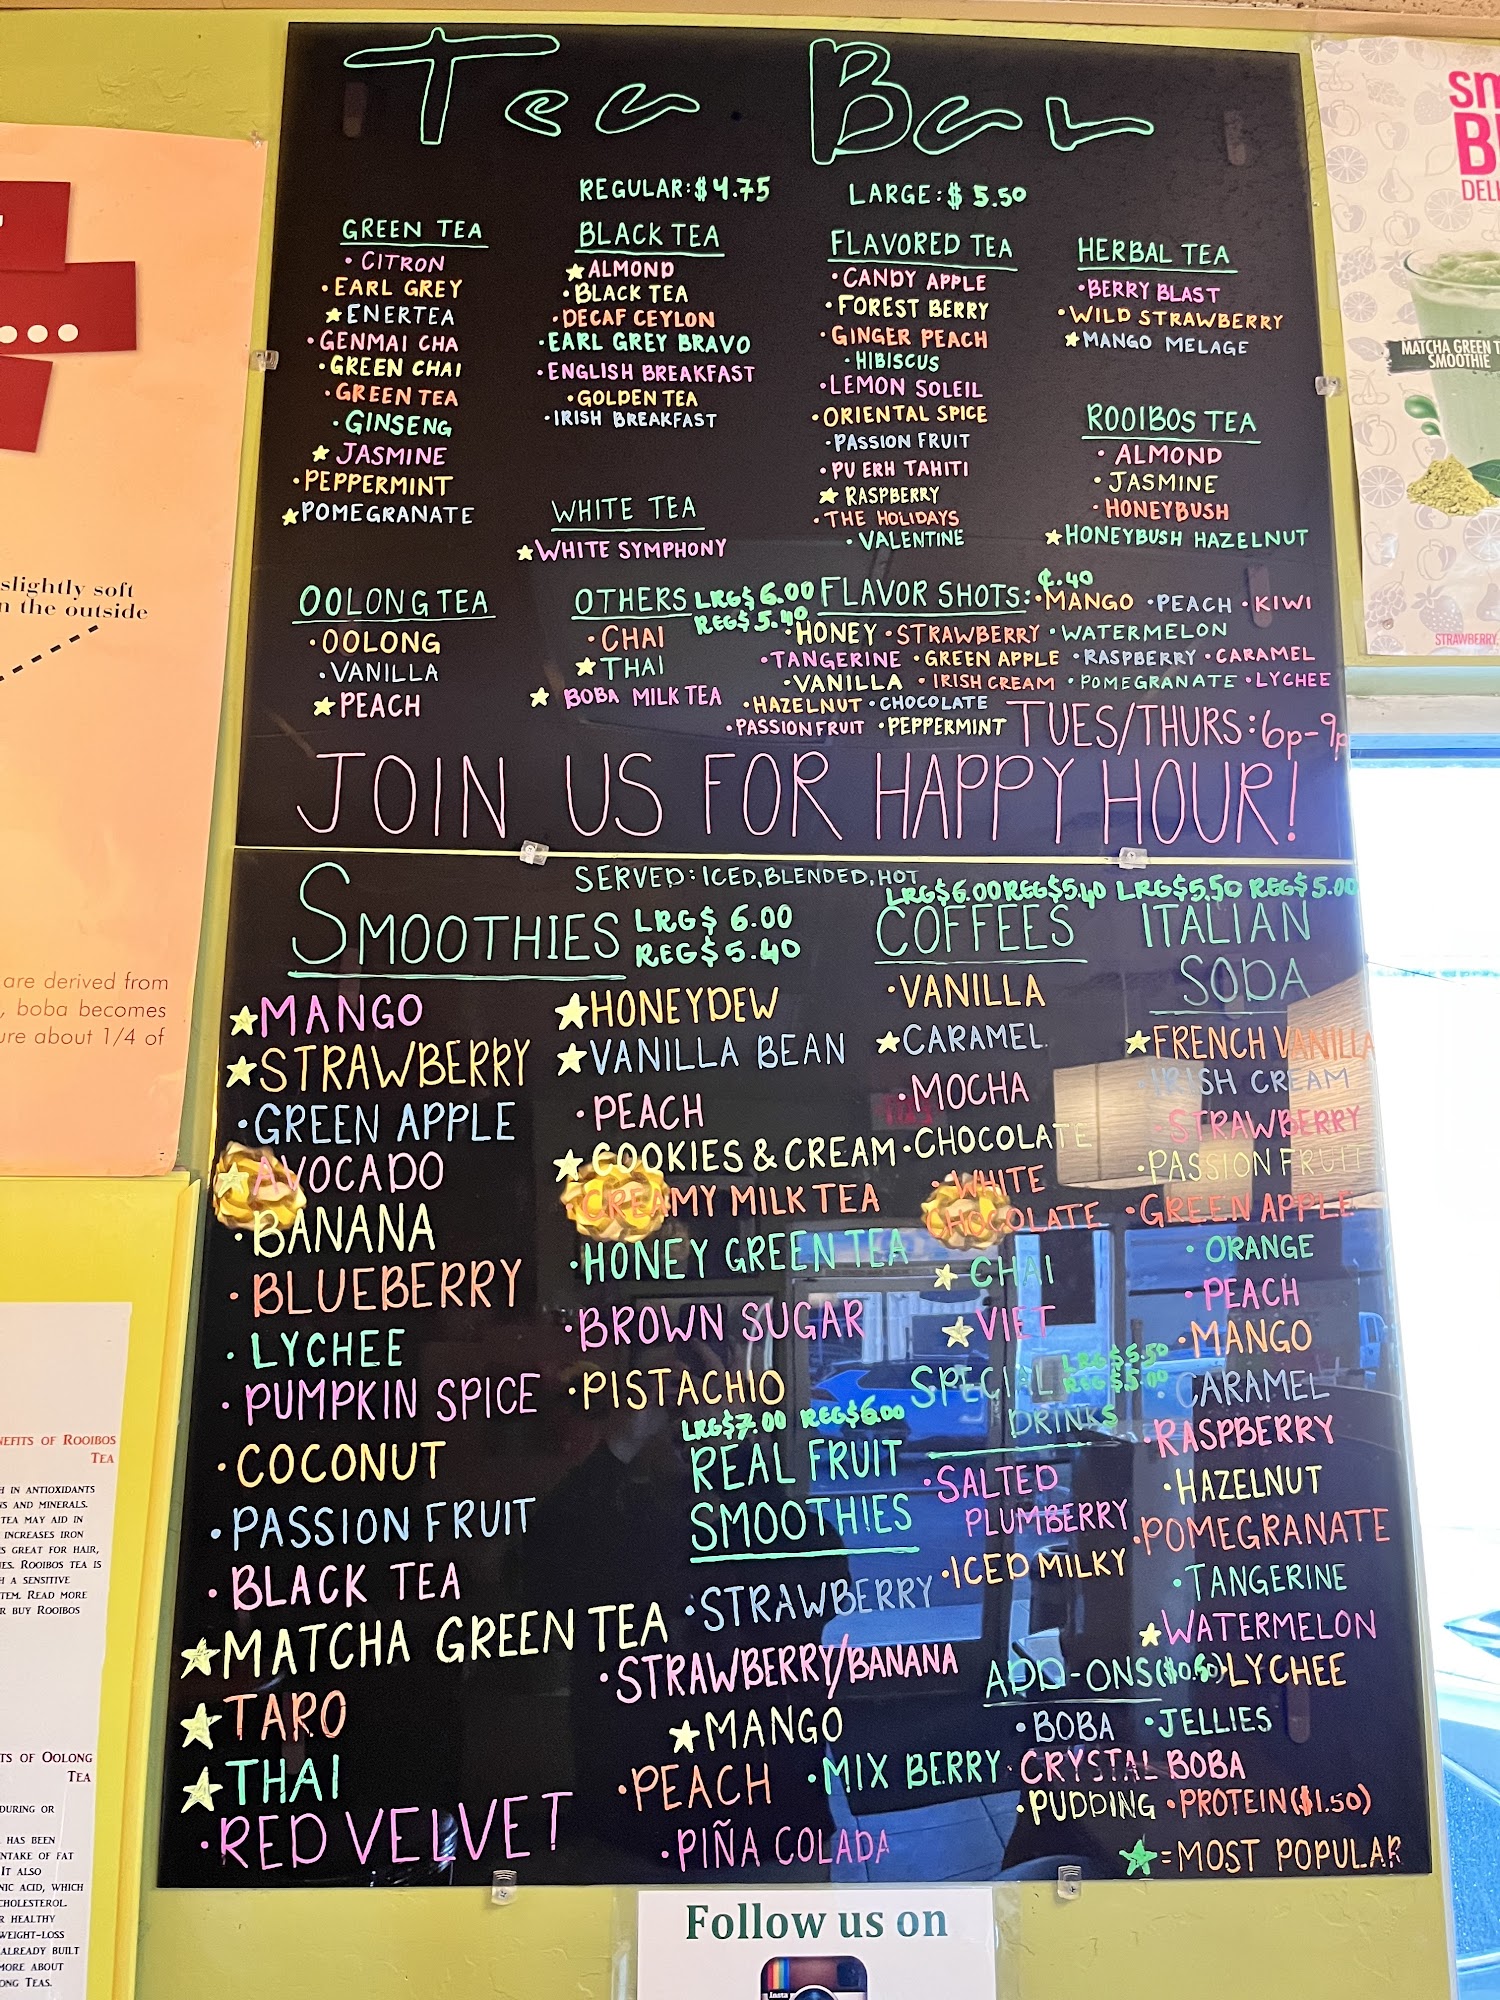 Tea Bar
REGULAR: $4.75
LARGE: $5.50
GREEN TEA
• CITRON
• EARL GREY
★ ENERTEA
• GENMAI CHA
• GREEN CHAI
• GREEN TEA
• GINSENG
★ JASMINE
• PEPPERMINT
★ POMEGRANATE
BLACK TEA
★ ALMOND
• BLACK TEA
• DECAF CEYLON
• EARL GREY BRAVO
• ENGLISH BREAKFAST
• GOLDEN TEA
• IRISH BREAKFAST
WHITE TEA
★ WHITE SYMPHONY
FLAVORED TEA
• CANDY APPLE
• FOREST BERRY
• GINGER PEACH
• HIBISCUS
• LEMON SOLEIL
• ORIENTAL SPICE
• PASSION FRUIT
• PU ERH TAHITI
★ RASPBERRY
• THE HOLIDAYS
• VALENTINE
HERBAL TEA
• BERRY BLAST
• WILD STRAWBERRY
★ MANGO MELAGE
ROOIBOS TEA
• ALMOND
• JASMINE
• HONEYBUSH
★ HONEYBUSH HAZELNUT
OOLONG TEA
• OOLONG
• VANILLA
★ PEACH
OTHERS LRG $6.00
REG $5.40
• CHAI
★ THAI
★ BOBA MILK TEA
FLAVOR SHOTS: ¢.40
• MANGO • PEACH • KIWI
• HONEY • STRAWBERRY • WATERMELON
• TANGERINE • GREEN APPLE • RASPBERRY • CARAMEL
• VANILLA • IRISH CREAM • POMEGRANATE • LYCHEE
• HAZELNUT • CHOCOLATE
• PASSIONFRUIT • PEPPERMINT
TUES/THURS: 6p-9p
JOIN US FOR HAPPY HOUR!
SERVED: ICED, BLENDED, HOT
SMOOTHIES LRG $ 6.00
REG $ 5.40
★ MANGO
★ STRAWBERRY
• GREEN APPLE
★ AVOCADO
• BANANA
• BLUEBERRY
• LYCHEE
• PUMPKIN SPICE
• COCONUT
• PASSION FRUIT
• BLACK TEA
★ MATCHA GREEN TEA
★ TARO
★ THAI
• RED VELVET
★ HONEYDEW
★ VANILLA BEAN
• PEACH
★ COOKIES & CREAM
CREAMY MILK TEA
• HONEY GREEN TEA
• BROWN SUGAR
• PISTACHIO
LRG $7.00 REG $6.00
REAL FRUIT
SMOOTHIES
• STRAWBERRY
• STRAWBERRY/BANANA
★ MANGO
• PEACH
• MIX BERRY
• PIÑA COLADA
LRG $6.00 REG $5.40
COFFEES
• VANILLA
★ CARAMEL
• MOCHA
• CHOCOLATE
• WHITE
CHOCOLATE
★ CHAI
★ VIET
SPECIAL LRG $5.50
REG $5.00
DRINKS
• SALTED
PLUMBERRY
• ICED MILKY
LRG $5.50 REG $5.00
ITALIAN
SODA
★ FRENCH VANILLA
• IRISH CREAM
• STRAWBERRY
• PASSION FRUIT
• GREEN APPLE
• ORANGE
• PEACH
• MANGO
• CARAMEL
• RASPBERRY
• HAZELNUT
• POMEGRANATE
• TANGERINE
★ WATERMELON
• LYCHEE
ADD-ONS ($0.50)
• BOBA • JELLIES
• CRYSTAL BOBA
• PUDDING • PROTEIN ($1.50)
★ = MOST POPULAR
Follow us on
Insta
slightly soft
n the outside
are derived from
, boba becomes
ure about 1/4 of
NEFITS OF ROOIBOS
TEA
H IN ANTIOXIDANTS
NS AND MINERALS.
TEA MAY AID IN
INCREASES IRON
S GREAT FOR HAIR,
ES. ROOIBOS TEA IS
H A SENSITIVE
TEM. READ MORE
R BUY ROOIBOS
TS OF OOLONG
TEA
DURING OR
HAS BEEN
NTAKE OF FAT
IT ALSO
NIC ACID, WHICH
CHOLESTEROL.
R HEALTHY
WEIGHT-LOSS
ALREADY BUILT
MORE ABOUT
ONG TEAS.
sm
B
DELI
MATCHA GREEN T
SMOOTHIE
STRAWBERRY,